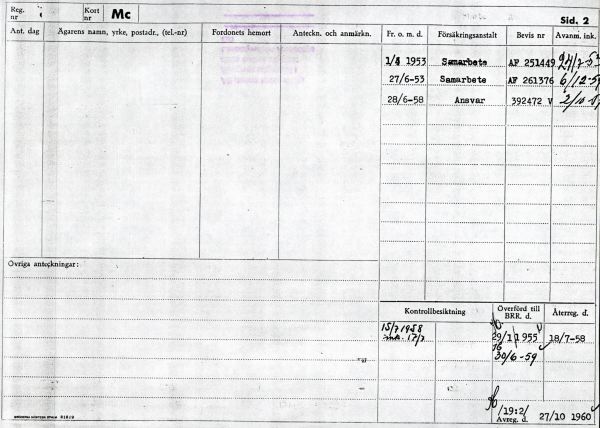 Reg. nr
Kort nr Mc
Sid. 2
Ant. dag Ägarens namn, yrke, postadr., (tel.-nr) Fordonets hemort Anteckn. och anmärkn. Fr. o. m. d. Försäkringsanstalt Bevis nr Avanm. ink.
1/5 1953 Samarbete AF 251449
27/6-53 Samarbete AF 261376 6/12-59
28/6-58 Ansvar 392472 V
Övriga anteckningar:
Kontrollbesiktning Överförd till BRR. d. Återreg. d.
15/7 1958
29/1 1955 18/7-58
30/6-59
/19:2/
Avreg. d. 27/10 1960